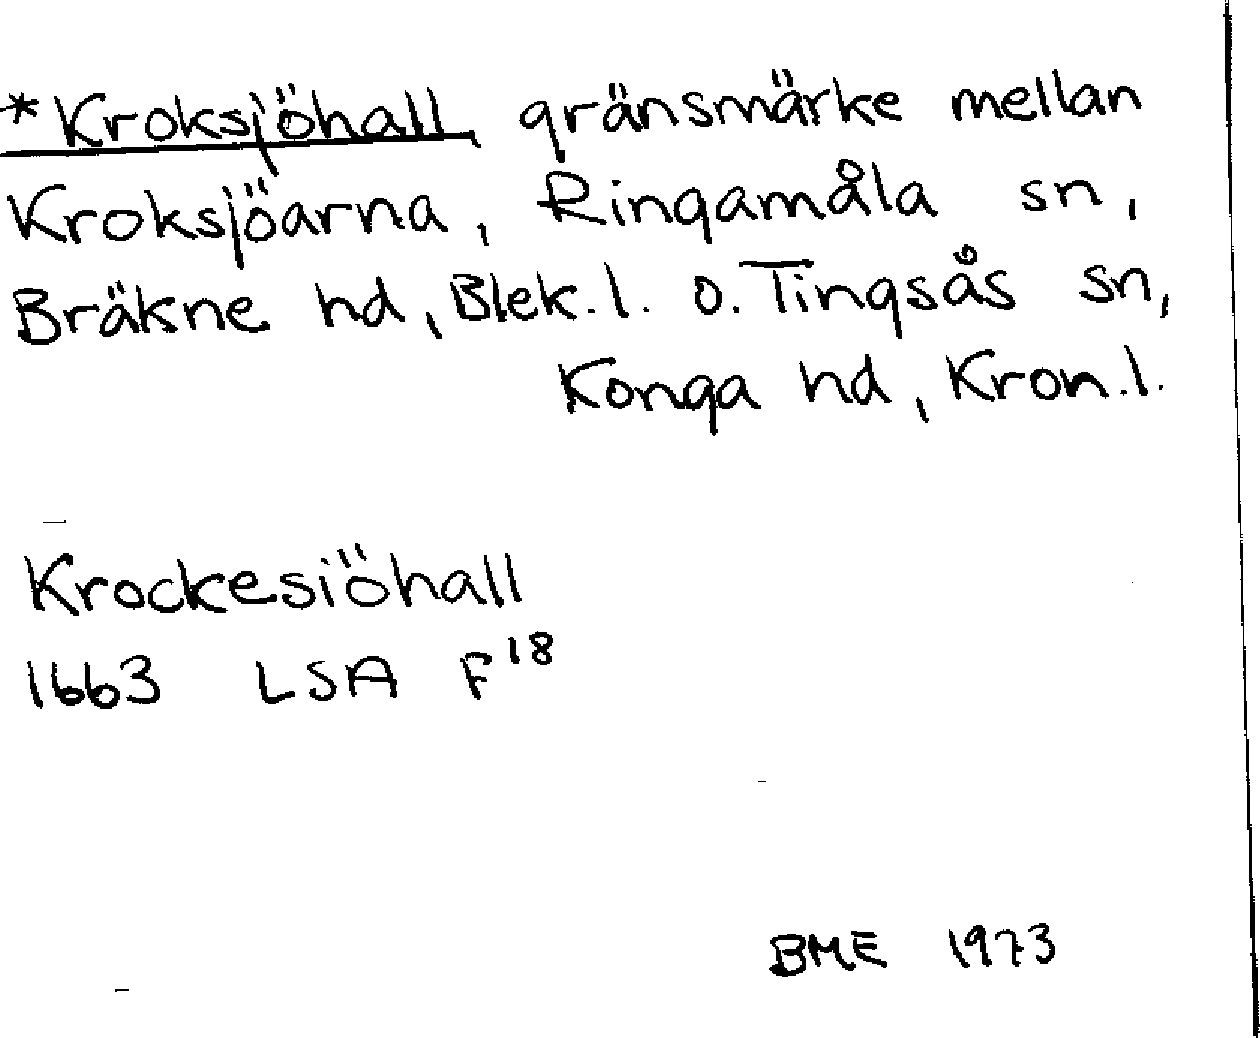 *Kroksjöhall, gränsmärke mellan
Kroksjöarna, Ringamåla sn,
Bräkne hd, Blek.l. o. Tingsås sn,
Konga hd, Kron.l.
Krockesiöhall
1663 LSA F18
BME 1973